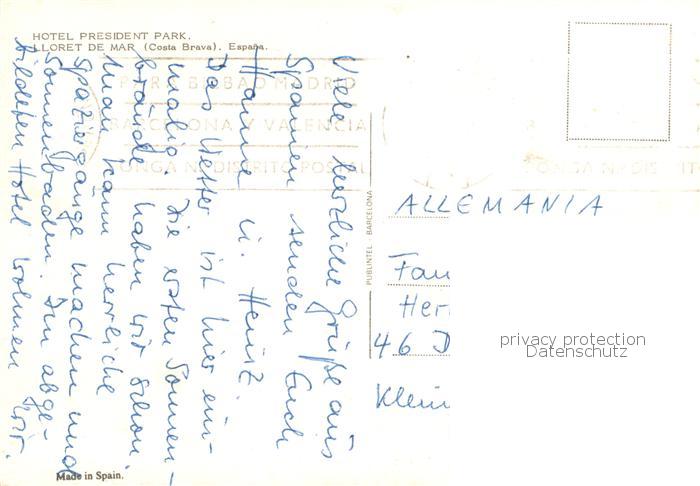 HOTEL PRESIDENT PARK.
LLORET DE MAR (Costa Brava). España.
Viele herzliche Grüße aus
Spanien senden Euch
Hanne u. Heinz.
Das Wetter ist hier ein-
malig. Die ersten Sonnen-
brände haben wir schon.
Man kann herrliche
Spaziergänge machen und
Sonnenbaden. Im abge-
bildeten Hotel wohnen wir.
PARA BILBAO MADRID
BARCELONA Y VALENCIA
PONGA Nº DISTRITO POSTAL
PONGA Nº DIS
PUBLINTEL - BARCELONA
ALLEMANIA
Fam
Her
46 D
Klein
privacy protection
Datenschutz
Made in Spain.